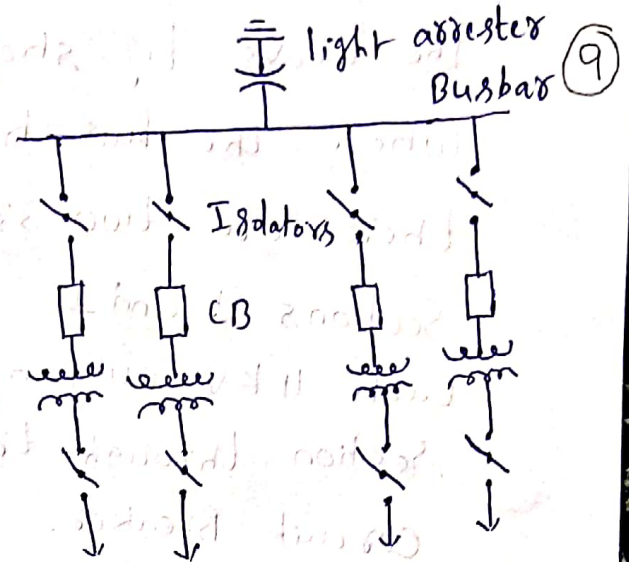 light arrester
Busbar
9
Isolators
CB